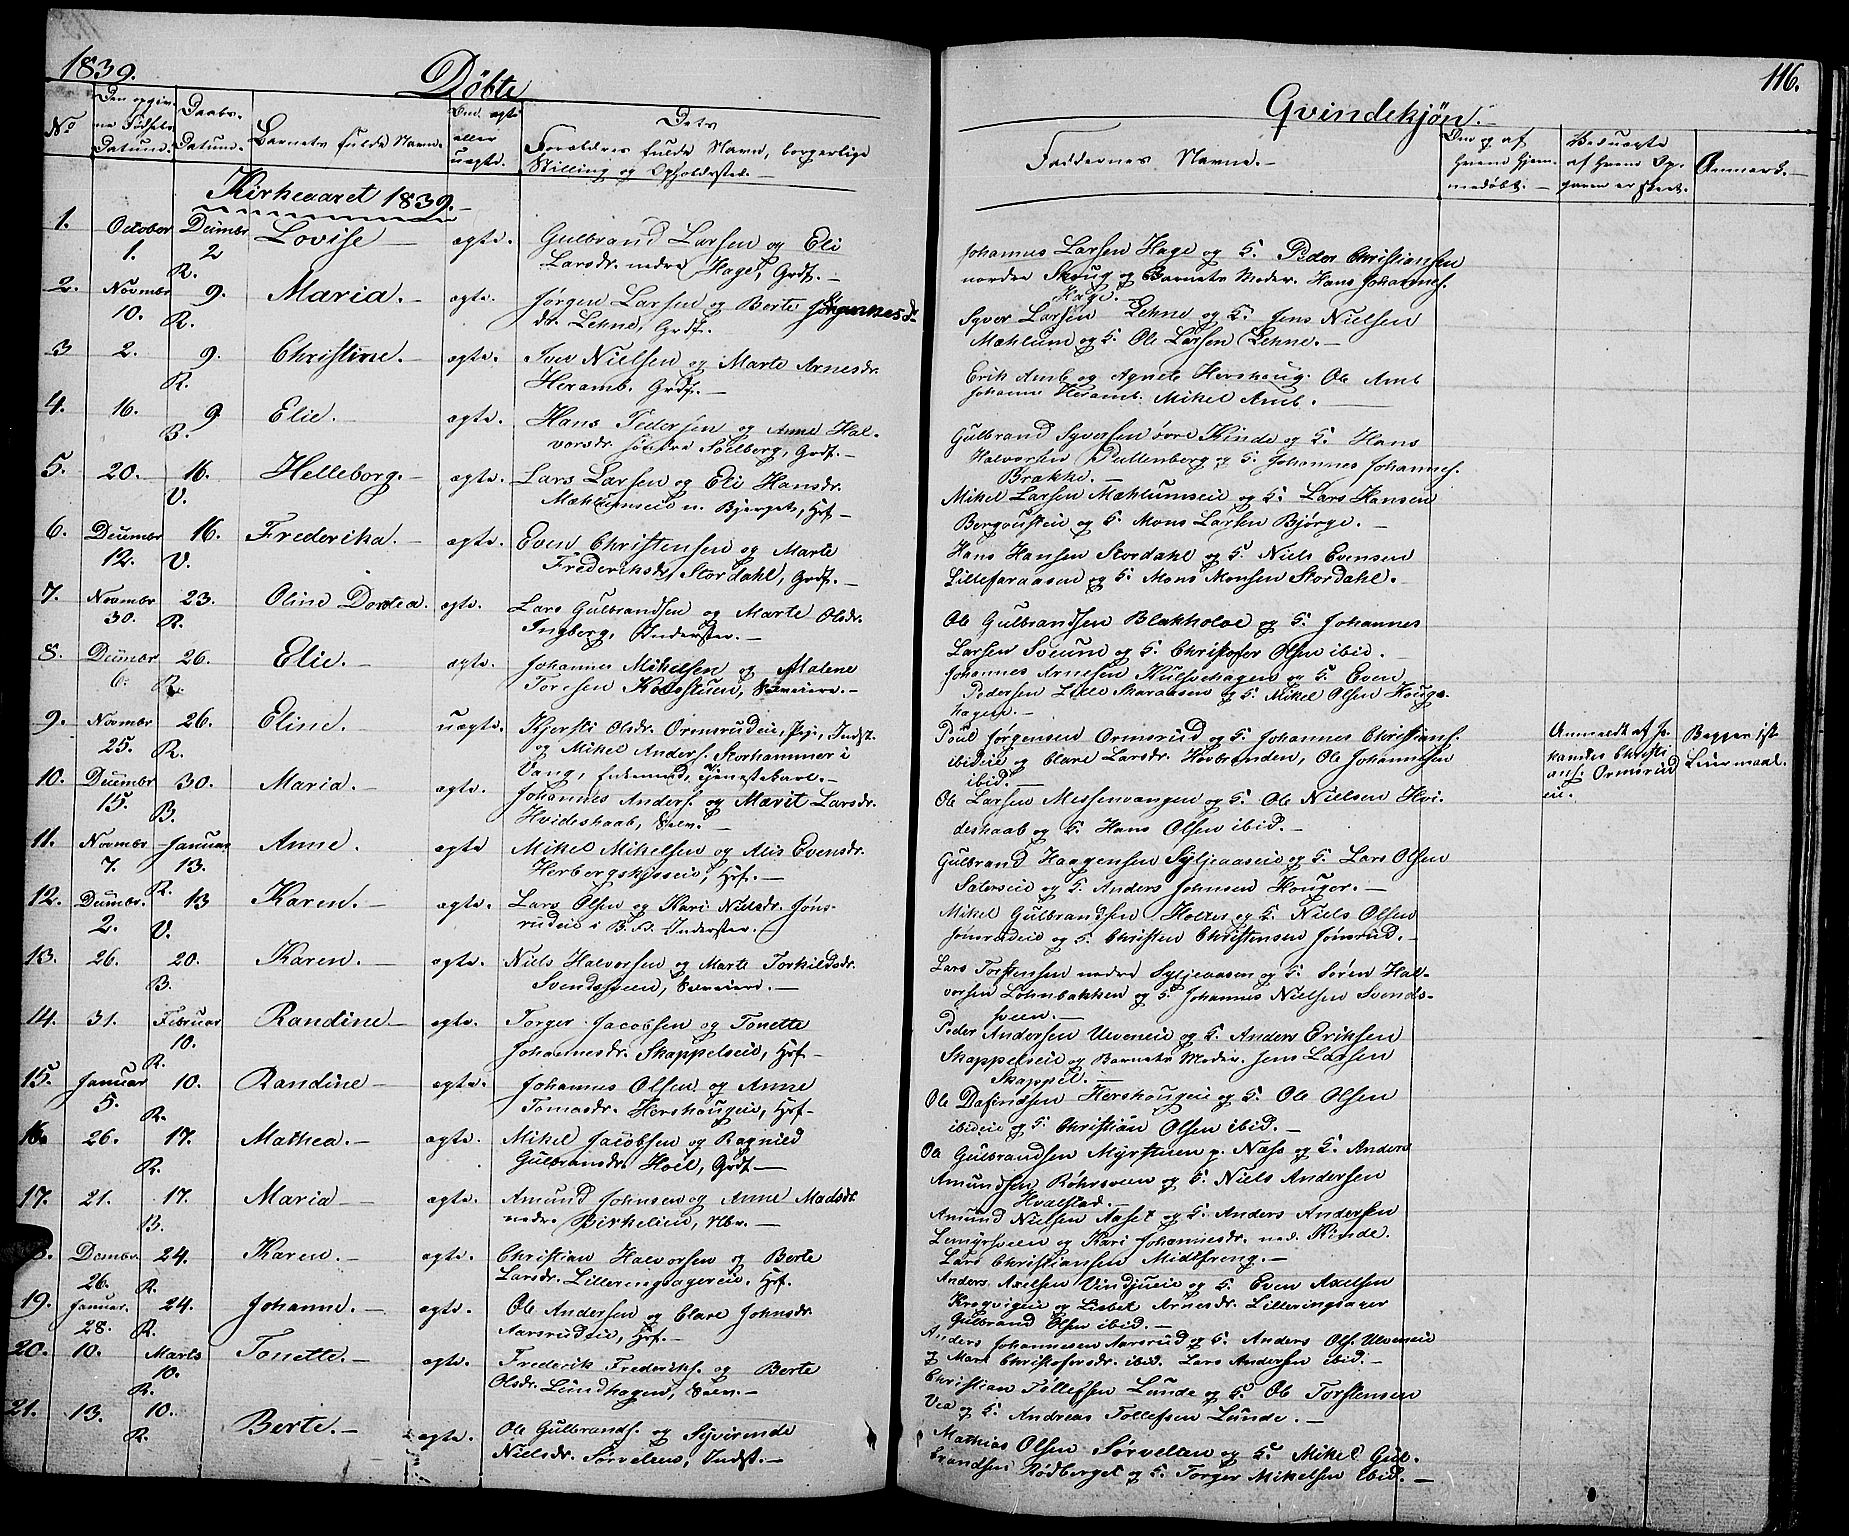 1839.
Döbte
Gvindekjön.
116.
No
Den opgiv-
ne Födsels
Datum.
Daabs-
Datum.
Barnets fulde Navn.
Om ægte
eller
uægte.
Dets
Forældres fulde Navn, borgerlige
Stilling og Opholdssted.
Faddernes Navne.
Om og af
hvem hjem-
medöbt.
Besværgte
af hvem Op-
gaven er skeet.
Anmærk.
Kirkeaaret 1839.
1. October 1. Decmbr 2 R. Lovise ægte. Gulbrand Larsen og Eli
Larsdr. nedre Hage, Grdf.
Johannes Larsen Hage og G. Peder Christiansen
nordre Skoug og Barnets Moder. Hans Johannes.
Hage.
2. Novmbr 10. 9. R. Maria. ægte. Jörgen Larsen og Berte Johannesd-
dr. Lehne, Grdf.
Syver Larsen Lehne og G. Jens Nielsen
Mæhlum og G. Ole Larsen Lehne.
3 2. 9. R. Christine. ægte. Iver Nielsen og Marte Arnesdr.
Heramb. Grdf.
Erik Amb og Agnete Hershoug. Ole Amb
Johanne Heramb. Mikel Amb.
4. 16. 9 B. Elie. ægte. Hans Pedersen og Anne Hal-
vorsdr. söndre Soelberg, Grdf.
Gulbrand Syversen övre Kinde og G. Hans
Halvorsen Pullenberg og G. Johannes Johannes.
Brække.
5. 20. 16. V. Helleborg. ægte. Lars Larsen og Eli Hansdr.
Mæhlumseie u. Bjerget, Hrf.
Mikel Larsen Mæhlumseie og G. Lars Hansen
Bergvusteie og G. Mons Larsen Bjørge.
6. Decmbr 12. 16. V. Frederika. ægte. Even Christensen og Marte
Frederiksdr. Stordahl, Grdf.
Hans Hansen Stordahl og G. Niels Evensen
Lillefaraasen og G. Mons Monsen Stordahl.
7. Novmbr 30. 23. R. Oline Dortea. ægte. Lars Gulbrandsen og Marte Olsdr.
Ingberg, Inderster.
Ole Gulbrandsen Blækholve og G. Johannes
Larsen Sveum og G. Christofer Olsen ibid.
8. Decmbr 6. 26. R. Elie. ægte. Johannes Mikelsen og Malene
Toresen Kolsstuen, Selveiere.
Johannes Arnesen Kulsvehagen og G. Even
Pedersen Lille Maraasen og G. Mikel Olsen Houge-
hagen.
9. Novmbr 25. 26. R. Eline. uægte. Kjersti Olsdr. Ormsrudeie, Pige, Indst.
og Mikel Anders. Storhammer i
Vang, Enkemand, Tjenestekarl.
Poul Jörgensen Ormsrud og G. Johannes Christians.
ibideie og Clare Larsdr. Hovbrenden, Ole Johannesen
ibid.
Anmeldt af Jo-
hannes Christi
ans. Ormsrud
eie.
Begges 1ste
Leiermaal.
10. Decmbr 15. 30. B. Maria. ægte. Johannes Anders. og Marit Larsdr.
Hvideskaab, Selv.
Ole Larsen Messenvangen og G. Ole Nielsen Hvi-
deskaab og G. Hans Olsen ibid.
11. Novmbr 7. Januar 13. R. Anne. ægte Mikel Mikelsen og Alis Evensdr.
Herbergskjsseie, Hrf.
Gulbrand Haagensen Syljeaaseie og G. Lars Olsen
Saterseie og G. Anders Johnsen Houger.
12. Decmbr. 2. 13 V. Karen. ægte. Lars Olsen og Kari Nielsdr. Jöns-
rudeie i B.Fd. Inderster.
Mikel Gulbrandsen Holter og G. Niels Olsen
Jönsrudeie og G. Christen Christensen Jönsrud.
13. 26. 20. B. Karen. ægte. Niels Halvorsen og Marte Torkildsdr.
Svendssveen, Selveiere.
Lars Torstensen nedre Syljeaasen og G. Sören Hal-
vorsen Lohnbakken og G. Johannes Nielsen Svends-
sveen.
14. 31. Februar 10. R. Randine ægte. Torger Jacobsen og Tonette
Johannesdr. Skappelseie, Hrf.
Peder Andersen Ulveneie og G. Anders Eriksen
Skappelseie og Barnets Moder. Jens Larsen
Skappel.
15. Januar 5. 10. R. Randine ægte. Johannes Olsen og Anne
Tomasdr. Hershougeie, Hrf.
Ole Dafindsen Hershougeie og G. Ole Olsen
ibideie og G. Christian Olsen ibid.
16. 26. 17. R. Mathea. ægte. Mikel Jacobsen og Ragnild
Gulbransdr. Hoel, Grdf.
Ole Gulbrandsen Myrstuen p. Næss og G. Anders
Amundsen Röhrsveen og G. Niels Andersen
Hvalstad.
17. 21. 17. B. Maria ægte. Amund Johnsen og Anne Madsdr.
nedre Birkelien, Nbr.
Amund Nielsen Aaset og G. Anders Andersen
Lemyrsveen og Kari Johannesdr. ned. Kinde.
Lars Christiansen Midtfreng.
8. Dembr. 26. 24. R. Karen. ægte. Christian Halvorsen og Berte
Larsdr. Lilleringsagereie. Hrf.
Anders Axelsen Vindjueie og G. Even Axelsen
Kragvigeie og Lisbet Arnesdr. Lilleringsager
Gulbrand Olsen ibid.
19. Januar. 28. 24. R. Johanne. ægte. Ole Andersen og Clare Johnsdr.
Aarsrudeie, Hrf.
Anders Johannesen Aarsrud og G. Anders Ols. Ulveneie
og Mari Christofersdr. ibid. Lars Andersen ibid.
20. 10. Marts 10. R. Tonette. ægte. Frederik Frederiks. og Berte
Olsdr. Lundhagen, Selv.
Christian Tollefsen Lunde og G. Ole Torstensen
Vea og G. Andreas Tollefsen Lunde.
21. 13. 10. R. Berte. ægte. Ole Gulbrands. og Syvirende
Nielsdr. Sørvelten, Indst.
Mathias Olsen Sørvelten og G. Mikel Gul-
brandsen Rödberget og G. Torger Mikelsen ibid.